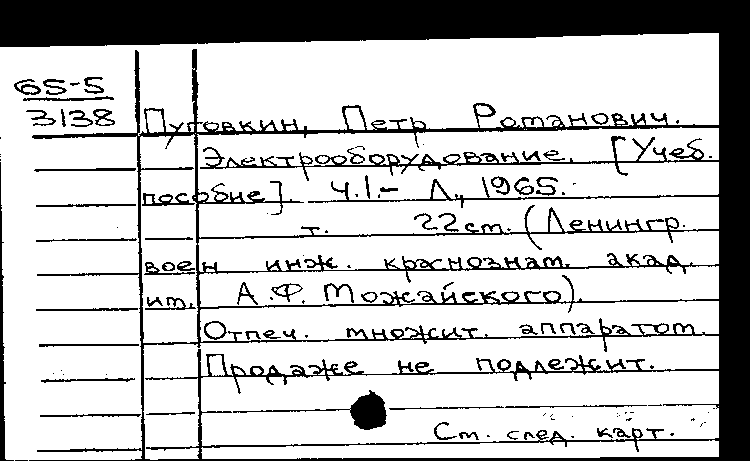 65-5
3138
Пуговкин, Петр Романович.
Электрооборудование. [Учеб.
пособие]. Ч.1.- Л., 1965.
т. 22см. (Ленингр.
воен инж. краснознам. акад.
им. А.Ф. Можайского).
Отпеч. множит. аппаратом.
Продаже не подлежит.
См. след. карт.